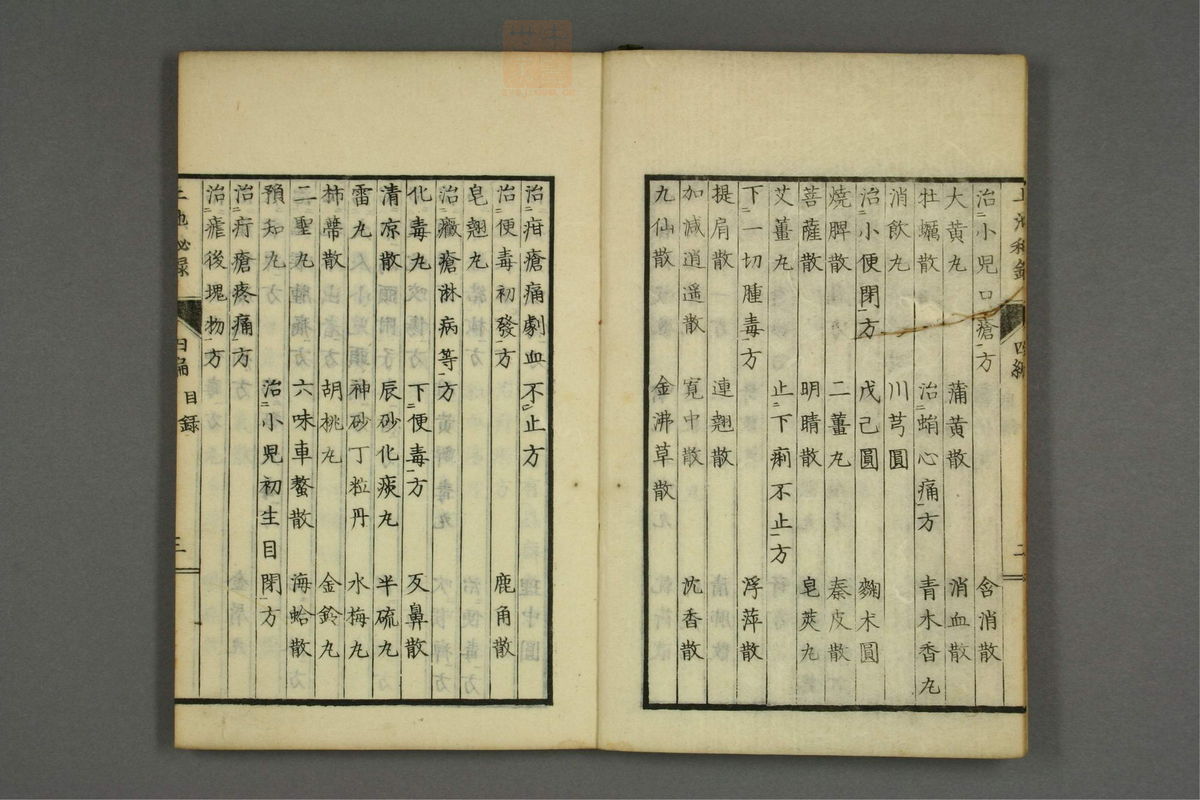 治小児口瘡方 含消散
大黄丸 蒲黄散 消血散
牡蠣散 治蛸心痛方 青木香丸
消飲丸 川芎圓
治小便閉方 戊己圓 麹朮圓
焼脾散 二薑丸 秦皮散
菩薩散 明睛散 皂莢丸
艾薑丸 止下痢不止方
下一切腫毒方 浮萍散
提肩散 連翹散
加減逍遥散 寛中散 沈香散
九仙散 金沸草散
四編 二
治疳瘡痛劇血不止方
治便毒初發方 鹿角散
皂翹丸
治癥瘡淋病等方
化毒丸 下便毒方 㕛鼻散
清凉散 辰砂化痰丸 半硫丸
雷丸 神砂丁粒丹 水梅丸
柿蔕散 胡桃丸 金鈴丸
二聖丸 六味車螯散 海蛤散
預知丸 治小児初生目閉方
治疔瘡疼痛方
治瘧後塊物方
上池秘録 四編 目録 三